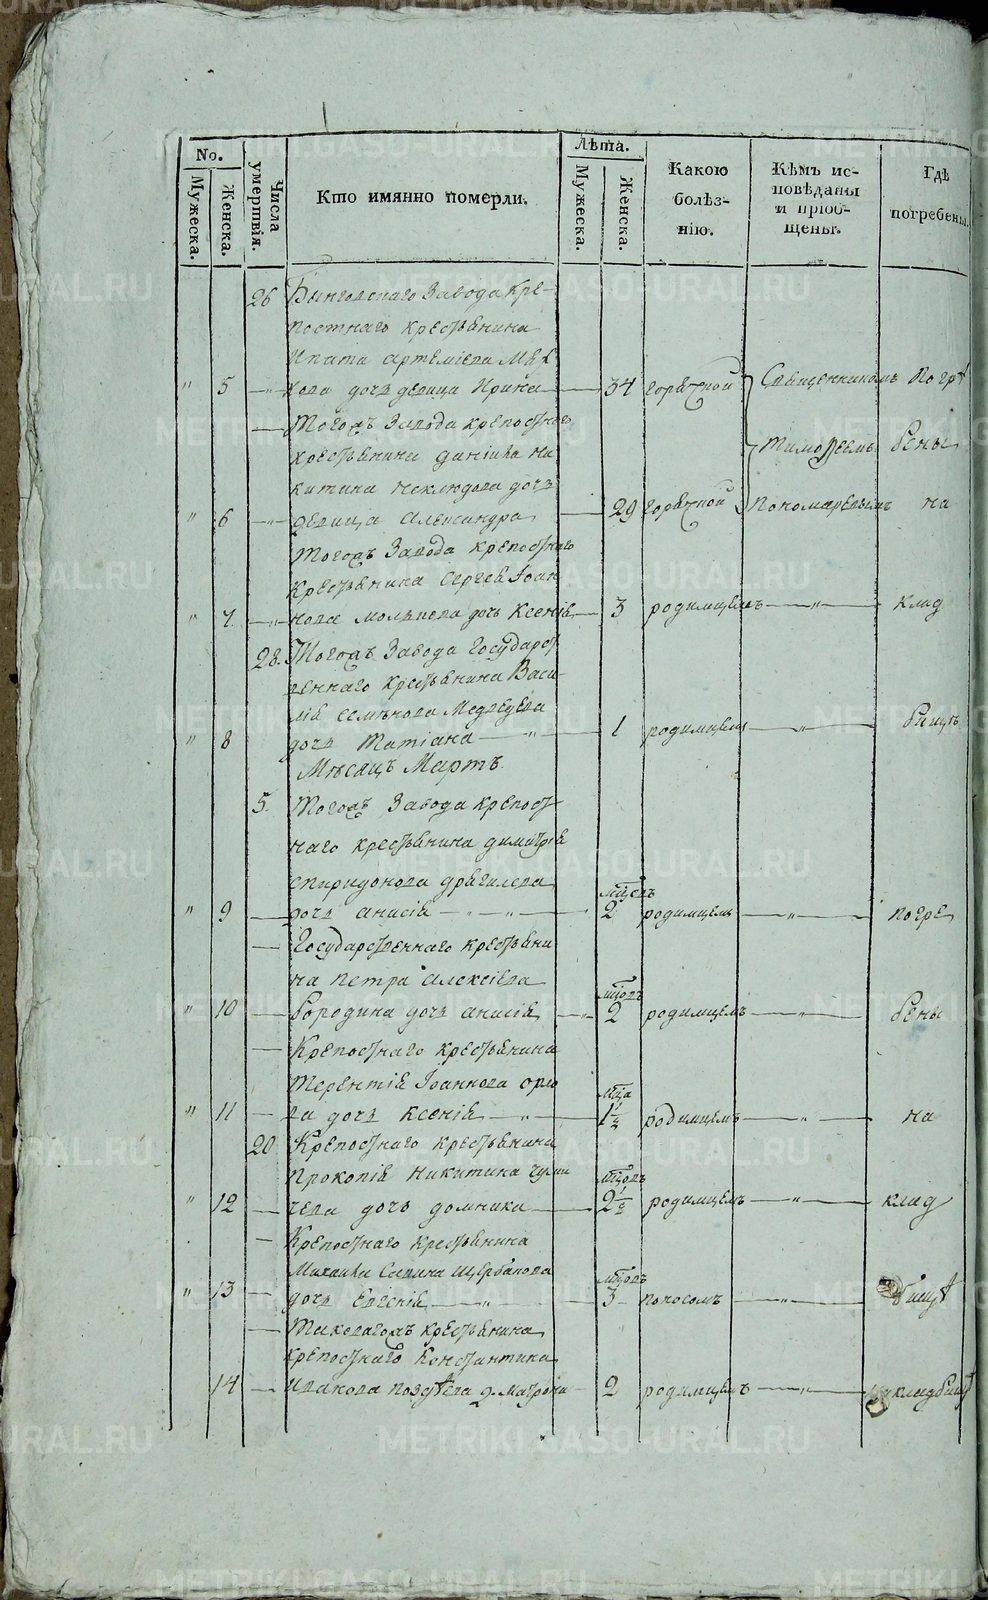 No.
Мужеска.
Женска.
Числа умертвія.
Кто имянно померли.
Лѣта.
Мужеска.
Женска.
Какою
болѣз-
нію.
Кѣмъ ис-
повѣданы
и пріоб-
щены.
Гдѣ
погребены.
26 Быньговскаго Завода кре-
постнаго крестьянина
Ипата Артеміева
" 5 дочь девица Ирина 34 горячкой Священникомъ Погр
Тогожъ Завода крепостнаго
крестьянина Даніила Ни
Тимофеемъ бены
китина Неклюдова дочь
" 6 девица Александра 29 горячкой Пономаревымъ на
Тогожъ Завода крепостнаго
крестьянина Сергея Іоан
" 7 нова дочь Ксенія 3 родимцемъ " клад
28. Тогожъ Завода Государст
веннаго крестьянина Васи-
лія Семенова Медведева
" 8 дочь Татіана " 1 родимцемъ " бищѣ
Мѣсяцъ Мартъ
5 Тогожъ Завода крепост
наго крестьянина Димитрія
Спиридонова
мѣсцовъ
" 9 дочь Анисія " " 2 родимцемъ " погре
Государственнаго крестьяни
на Петра Алексіева
мѣсцовъ
" 10 Бородина дочь Анисія " 2 родимцемъ " бены
Крепостнаго крестьянина
Терентія Іоаннова Орло
мѣсца
" 11 ва дочь Ксенія " 1½ родимцемъ " на
20 Крепостнаго крестьянина
Прокопія Никитина
мѣсцовъ
" 12 дочь Домника 2½ родимцемъ " клад
Крепостнаго крестьянина
Михаила Савина Щербакова
мѣсцовъ
" 13 дочь Евгенія " 3 поносомъ " бищѣ
Таковагожъ крестьянина
крепостнаго Константина
14 Ивакова Поздѣева д. Матрона 2 родимцемъ " на кладбищѣ
METRIKI.GASO-URAL.RU